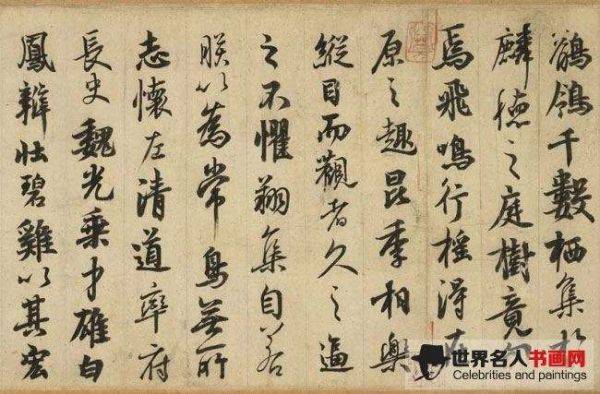 鶺鴒千數栖集於
麟德之庭樹竟旬
焉飛鳴行搖得在
原之趣昆季相樂
縱目而觀者久之逼
之不懼翔集自若
朕以為常鳥無所
志懷左清道率府
長史魏光乘才雄白
鳳辯壯碧雞以其宏
世界名人书画网
Celebrities and paintings